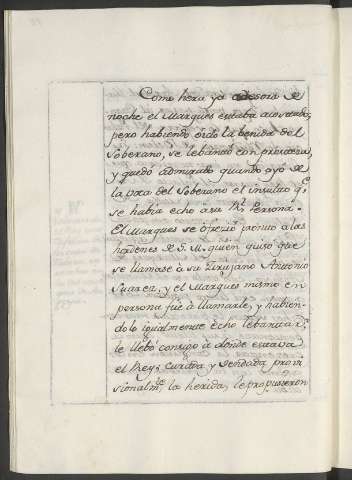 Como hera ya adesora de
noche el Marques estaba acostado,
pero habiendo oido la benida del
Soberano, se lebantó con presteza,
y quedó admirado quando oyó de
la voca del Soberano el insulto q.e
se habia echo a su R.l Persona.
El Marques se ofrezió pronto a las
hordenes de S. M. quien quiso que
se llamase à su Zirujano Antonio
Suarez, y el Marques mismo en
persona fue à llamarle, y habien-
dolo igualmente echo lebantar,
le llebó consigo à donde estava
el Rey; curada y vendada provi
sionalm.te la herida, le propusieron